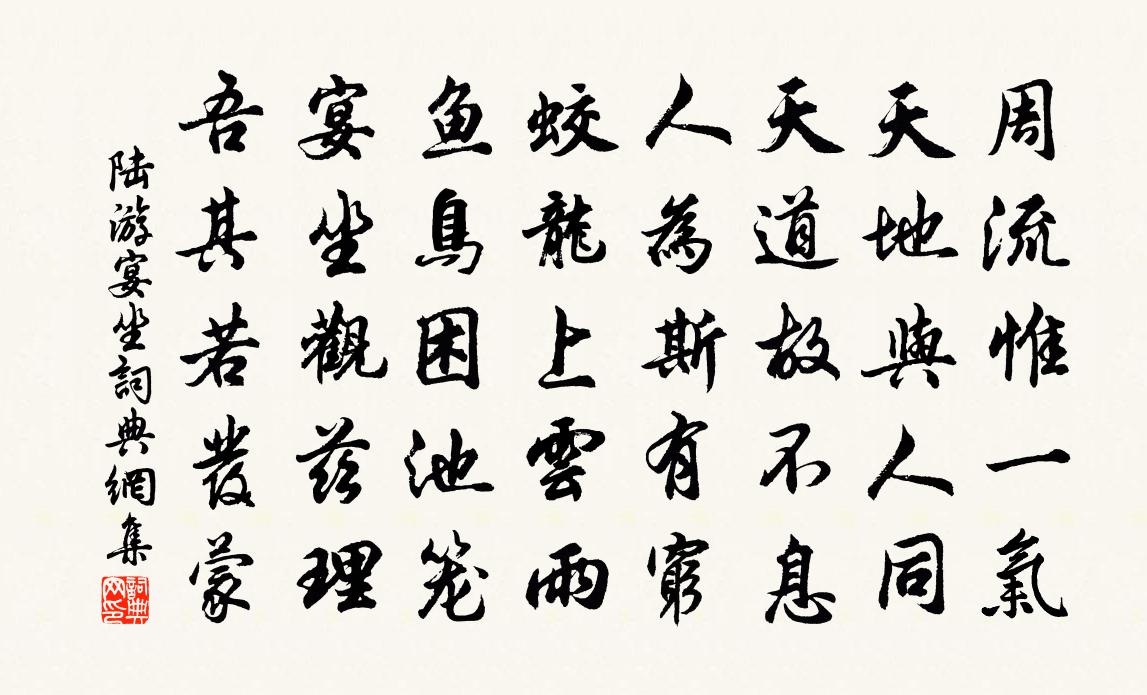 周流惟一氣
天地與人同
天道故不息
人為斯有窮
蛟龍上雲雨
鱼鳥困池笼
宴坐觀茲理
吾其若發蒙
陆游宴坐詞典網集
詞典网印